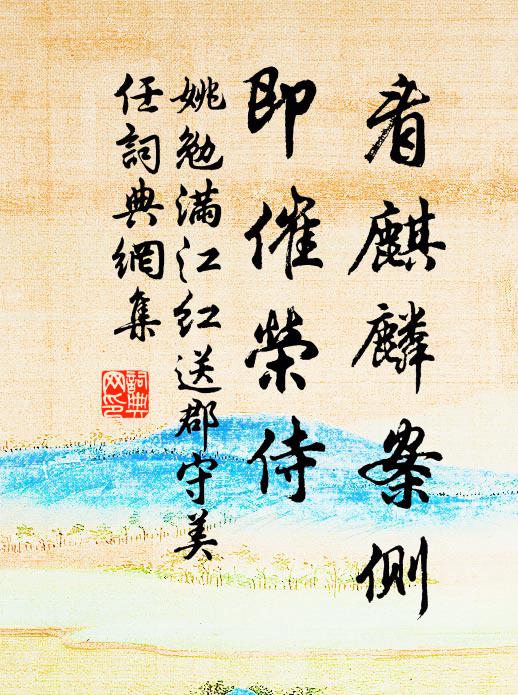 看麒麟案側
即催榮侍
姚勉滿江紅送郡守美
任詞典網集
詞典
网印